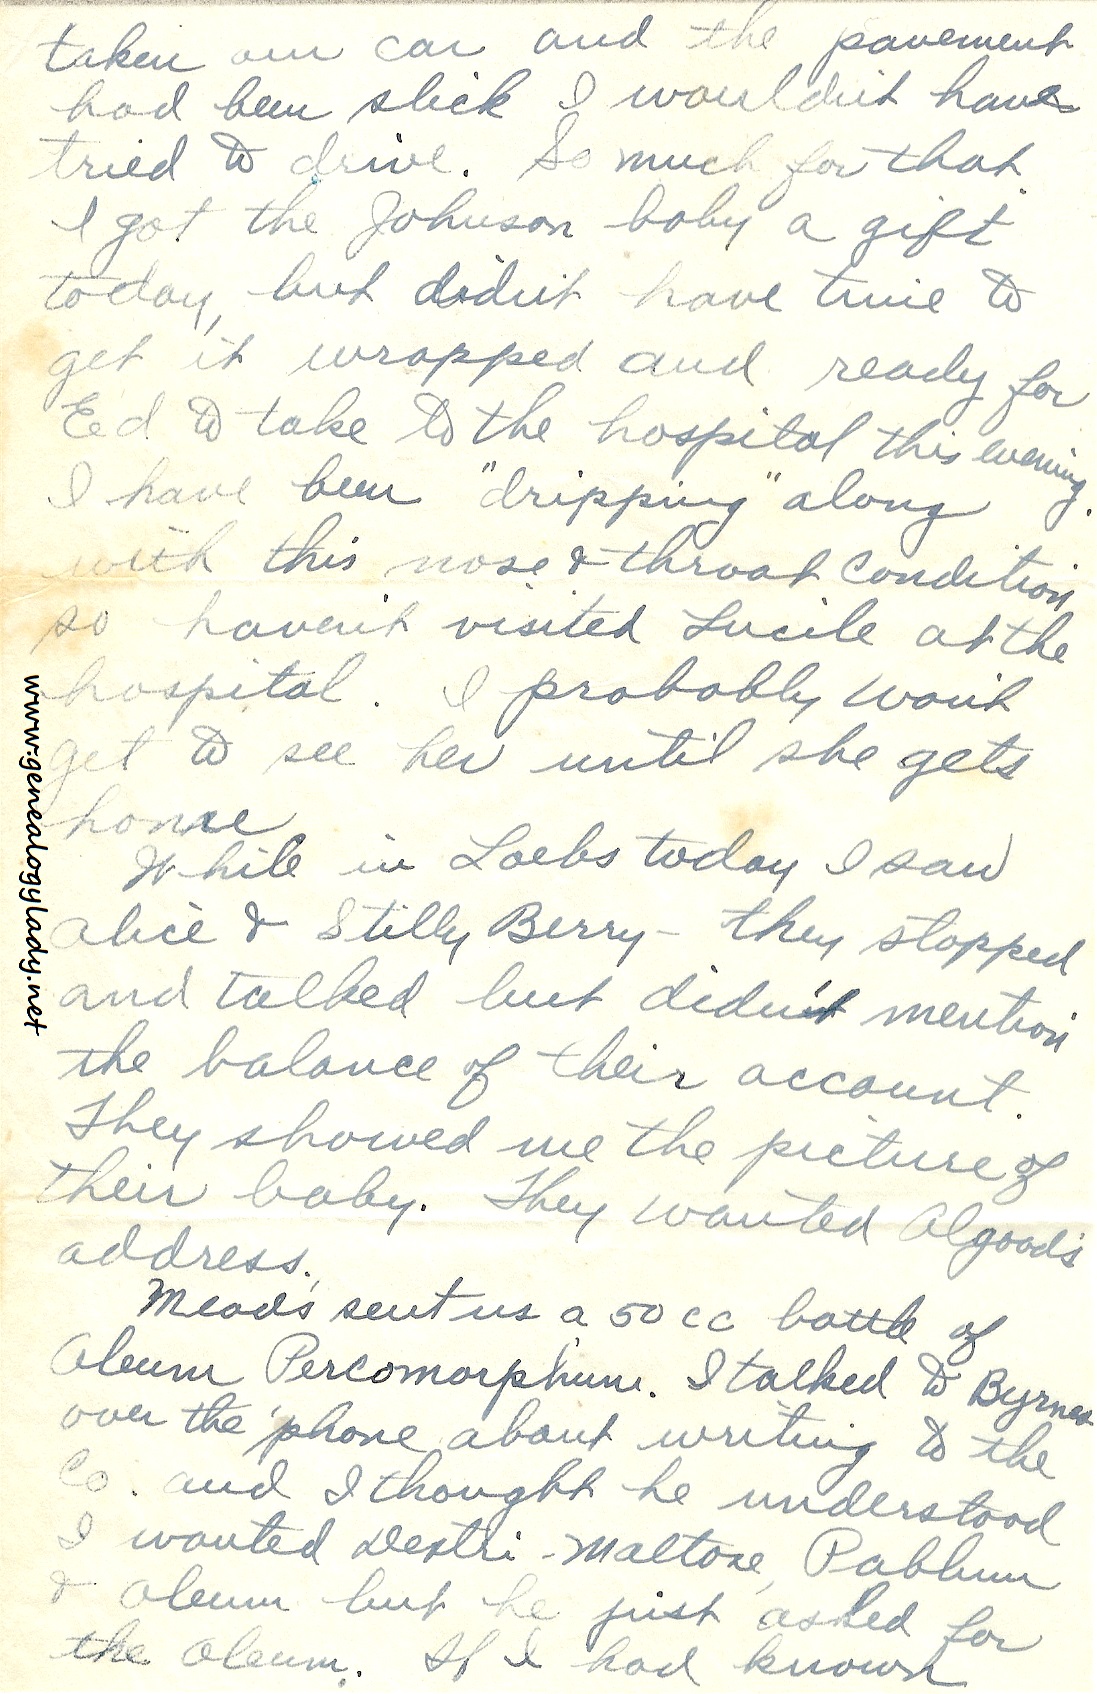 taken our car and the pavement
had been slick I wouldn't have
tried to drive. So much for that.
I got the Johnson baby a gift
today, but didn't have time to
get it wrapped and ready for
Eed to take to the hospital this evening.
I have been "dripping" along
with this nose & throat condition
so haven't visited Lucile at the
hospital. I probably won't
get to see her until she gets
home
While in Loebs today I saw
Alice & Stilly Berry - they stopped
and talked but didn't mention
the balance of their account.
They showed me the picture of
their baby. They wanted Algood's
address.
Mead's sent us a 50 cc bottle of
Oleum Percomorphum. I talked to Byrnes
over the 'phone about writing to the
Co. and I thought he understood
I wanted Dextri-Maltose, Pablum
& Oleum but he just asked for
the Oleum. If I had known
www.genealogylady.net